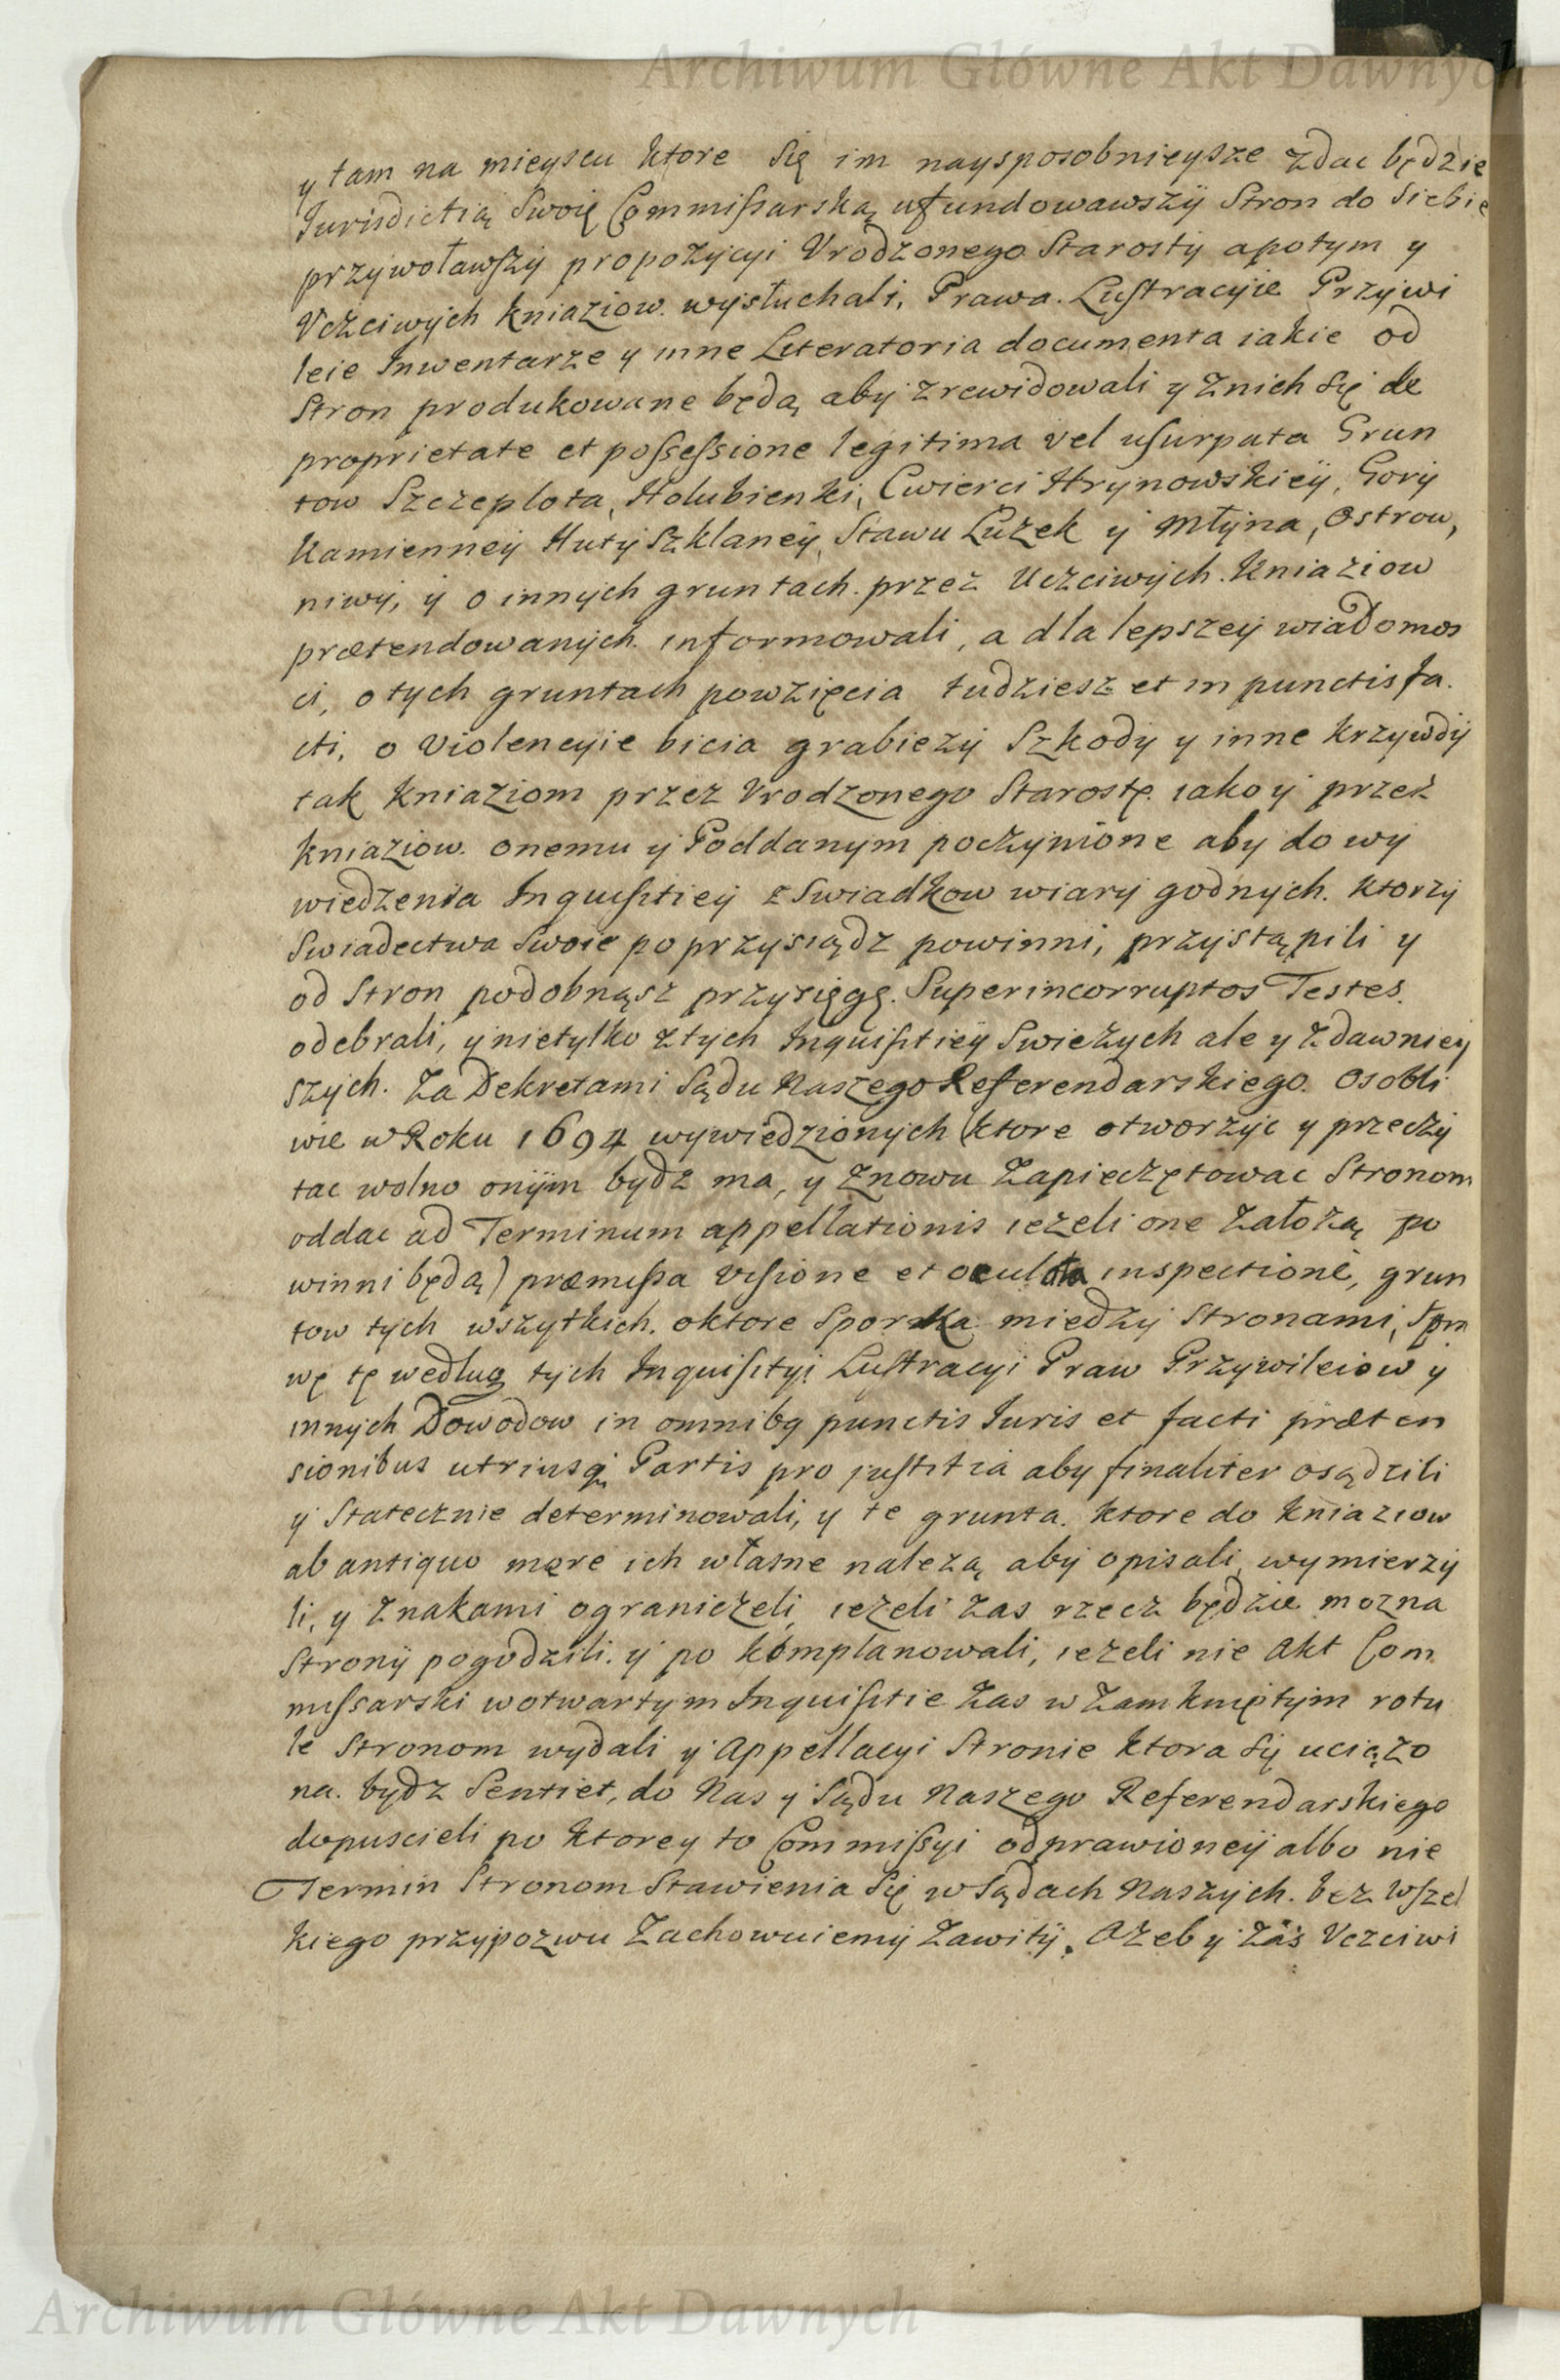 Archiwum Główne Akt Dawnych
y tam na mieyscu ktore się im naysposobnieysze zdac będzie
Iurisdictią Swoię Commissarską ufundowawszÿ Stron do siebie
przywoławszÿ propozycyi Vrodzonego Starostÿ apotym y
Vczciwÿch kniaziow. wysłuchali, Prawa. Lustracÿie Przÿwi
leie Inwentarze y inne Literatoria documenta iakie od
Stron produkowane będą aby zrewidowali y znich się de
proprietate et possessione legitima vel usurpata Grun
tow Szczeplota, Holubienki, Cwierci Hrynowskieÿ, Gorÿ
Kamienneÿ Hutÿ Szklaneÿ, Stawu Luzek ÿ Młÿna, Ostrow,
niwÿ, ÿ o innÿch gruntach. przez Uczciwÿch. Kniaziow
prætendowanÿch. informowali, a dla lepszeÿ wiadomos
ci, o tych gruntach powzięcia tudziesz et in punctis fa.
cti, o violencÿie bicia grabiezÿ Szkodÿ y inne krzÿwdÿ
tak kniaziom przez Vrodzonego Starostę. iako ÿ przez
kniaziow. onemu ÿ Poddanÿm poczÿnione abÿ do wy
wiedzenia Inquisitieÿ z Swiadkow wiarÿ godnych. ktorzÿ
Swiadectwa Swoie poprzÿsiądz powinni, przÿstąpili y
od Stron podobnąsz przysięgę. Super incorruptos Testes.
odebrali, y nietylko z tÿch Inquisitieÿ Swiezÿch ale y z dawnieÿ
szÿch. Za Dekretami Sądu Naszego Referendarskiego. osobli
wie w Roku 1694 wywiedzionÿch (ktore otworzÿc y przeczÿ
tac wolno onÿm bydz ma, y znowu Zapieczętowac Stronom
oddac ad Terminum appellationis iezeli one załozą po
winni będą) præmissa visione et oculata inspectione, grun
tow tych wszytkich. oktore Sporka miedzÿ Stronami, spra
wę tę według tych Inquisityi Lustracyi Praw Przÿwileiow ÿ
innych Dowodow in omnibq punctis Iuris et facti præten
sionibus utriusq; Partis pro justitia aby finaliter osądzili
ÿ Statecznie determinowali, y te grunta. ktore do kniaziow
ab antiquo more ich własne nalezą abÿ opisali, wymierzÿ
li, y Znakami ograniczeli, iezeli zas rzecz będzie mozna
Stronÿ pogodzili. ÿ po komplanowali, iezeli nie Akt Com
missarski wotwartÿm Inquisitie zas w zamkniętÿm rotu
le Stronom wydali ÿ Appellacyi Stronie ktora się uciązo
na. bydz Sentiet, do Nas ÿ Sądu Naszego Referendarskiego
dopuscieli po ktorey to Commissyi odprawioneÿ albo nie
Termin Stronom Stawienia się w Sądach Naszÿch. bez wszel
kiego przÿpozwu Zachowuiemÿ Zawitÿ. Azeby zas Vczciwi
Archiwum Główne Akt Dawnych